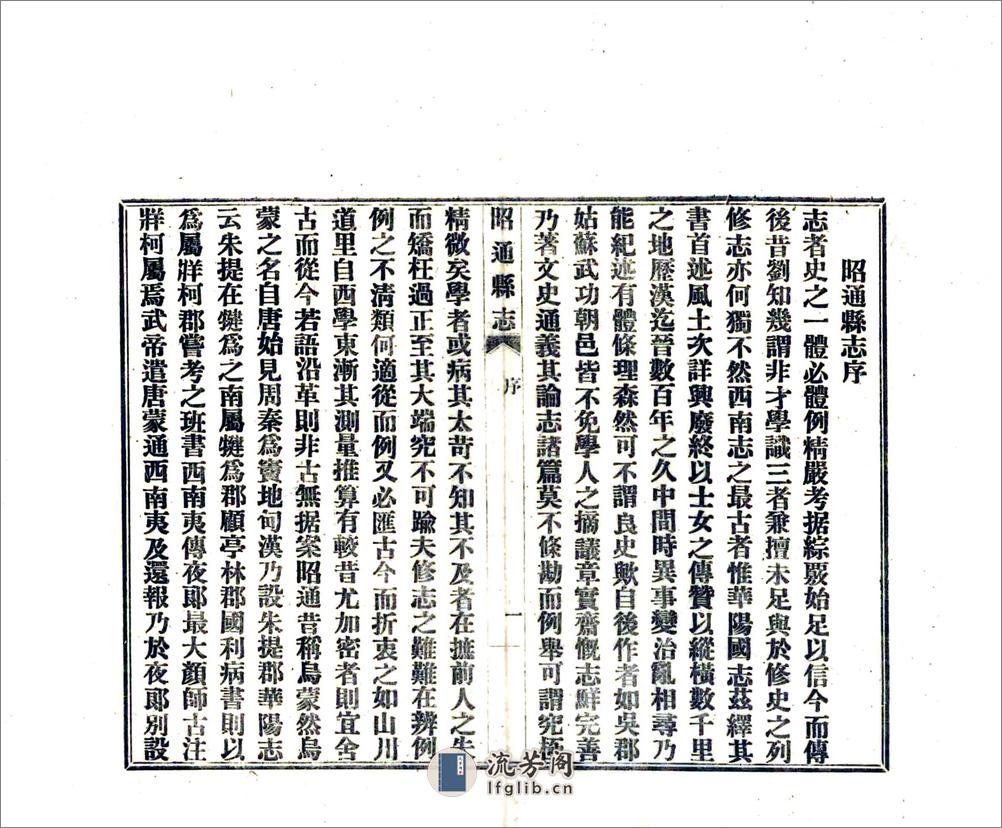 昭通縣志序
志者史之一體必體例精嚴考据綜覈始足以信今而傳
後昔劉知幾謂非才學識三者兼擅未足與於修史之列
修志亦何獨不然西南志之最古者惟華陽國志茲繹其
書首述風土次詳興廢終以士女之傳贊以縱橫數千里
之地歷漢迄晉數百年之久中間時異事變治亂相尋乃
能紀述有體條理森然可不謂良史歟自後作者如吳郡
姑蘇武功朝邑皆不免學人之摘議章實齋慨志鮮完善
乃著文史通義其論志諸篇莫不條勘而例舉可謂究極
昭通縣志
序
一
精微矣學者或病其太苛不知其不及者在摭前人之失
而矯枉過正至其大端究不可踰夫修志之難難在辨例
例之不清類何適從而例又必匯古今而折衷之如山川
道里自西學東漸其測量推算有較昔尤加密者則宜舍
古而從今若語沿革則非古無据案昭通昔稱烏蒙然烏
蒙之名自唐始見周秦為竇地甸漢乃設朱提郡華陽志
云朱提在犍為之南屬犍為郡顧亭林郡國利病書則以
為屬牂柯郡嘗考之班書西南夷傳夜郎最大顏師古注
牂柯屬焉武帝遣唐蒙通西南夷及還報乃於夜郎別設
流芳阁
lfglib.cn